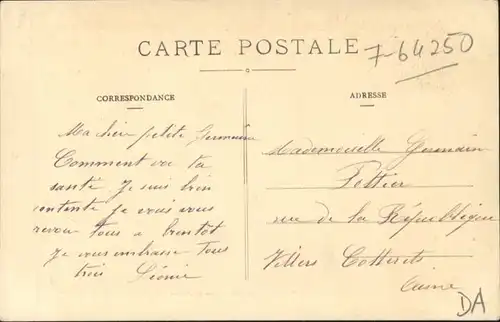 CARTE POSTALE
7-64250
CORRESPONDANCE
Ma chère petite Germaine
Comment va ta
santé Je suis bien
contente je vais vous
revoir tous a bientot
Je vous embrasse tous
trois Léonie
ADRESSE
Mademoiselle Germain
Pottier
rue de la République
Villers Cotterets
Aisne
DA